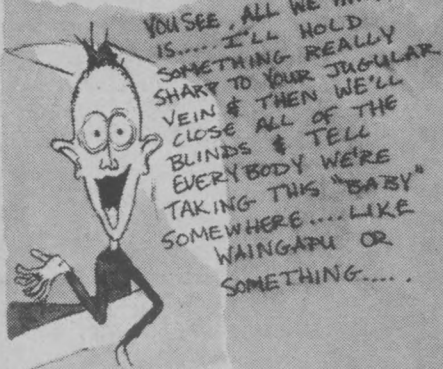 YOU SEE. ALL WE
IS..... I'LL HOLD
SOMETHING REALLY
SHARP TO YOUR JUGULAR
VEIN & THEN WE'LL
CLOSE ALL OF THE
BLINDS & TELL
EVERYBODY WE'RE
TAKING THIS "BABY"
SOMEWHERE.... LIKE
WAINGAPU OR
SOMETHING.....